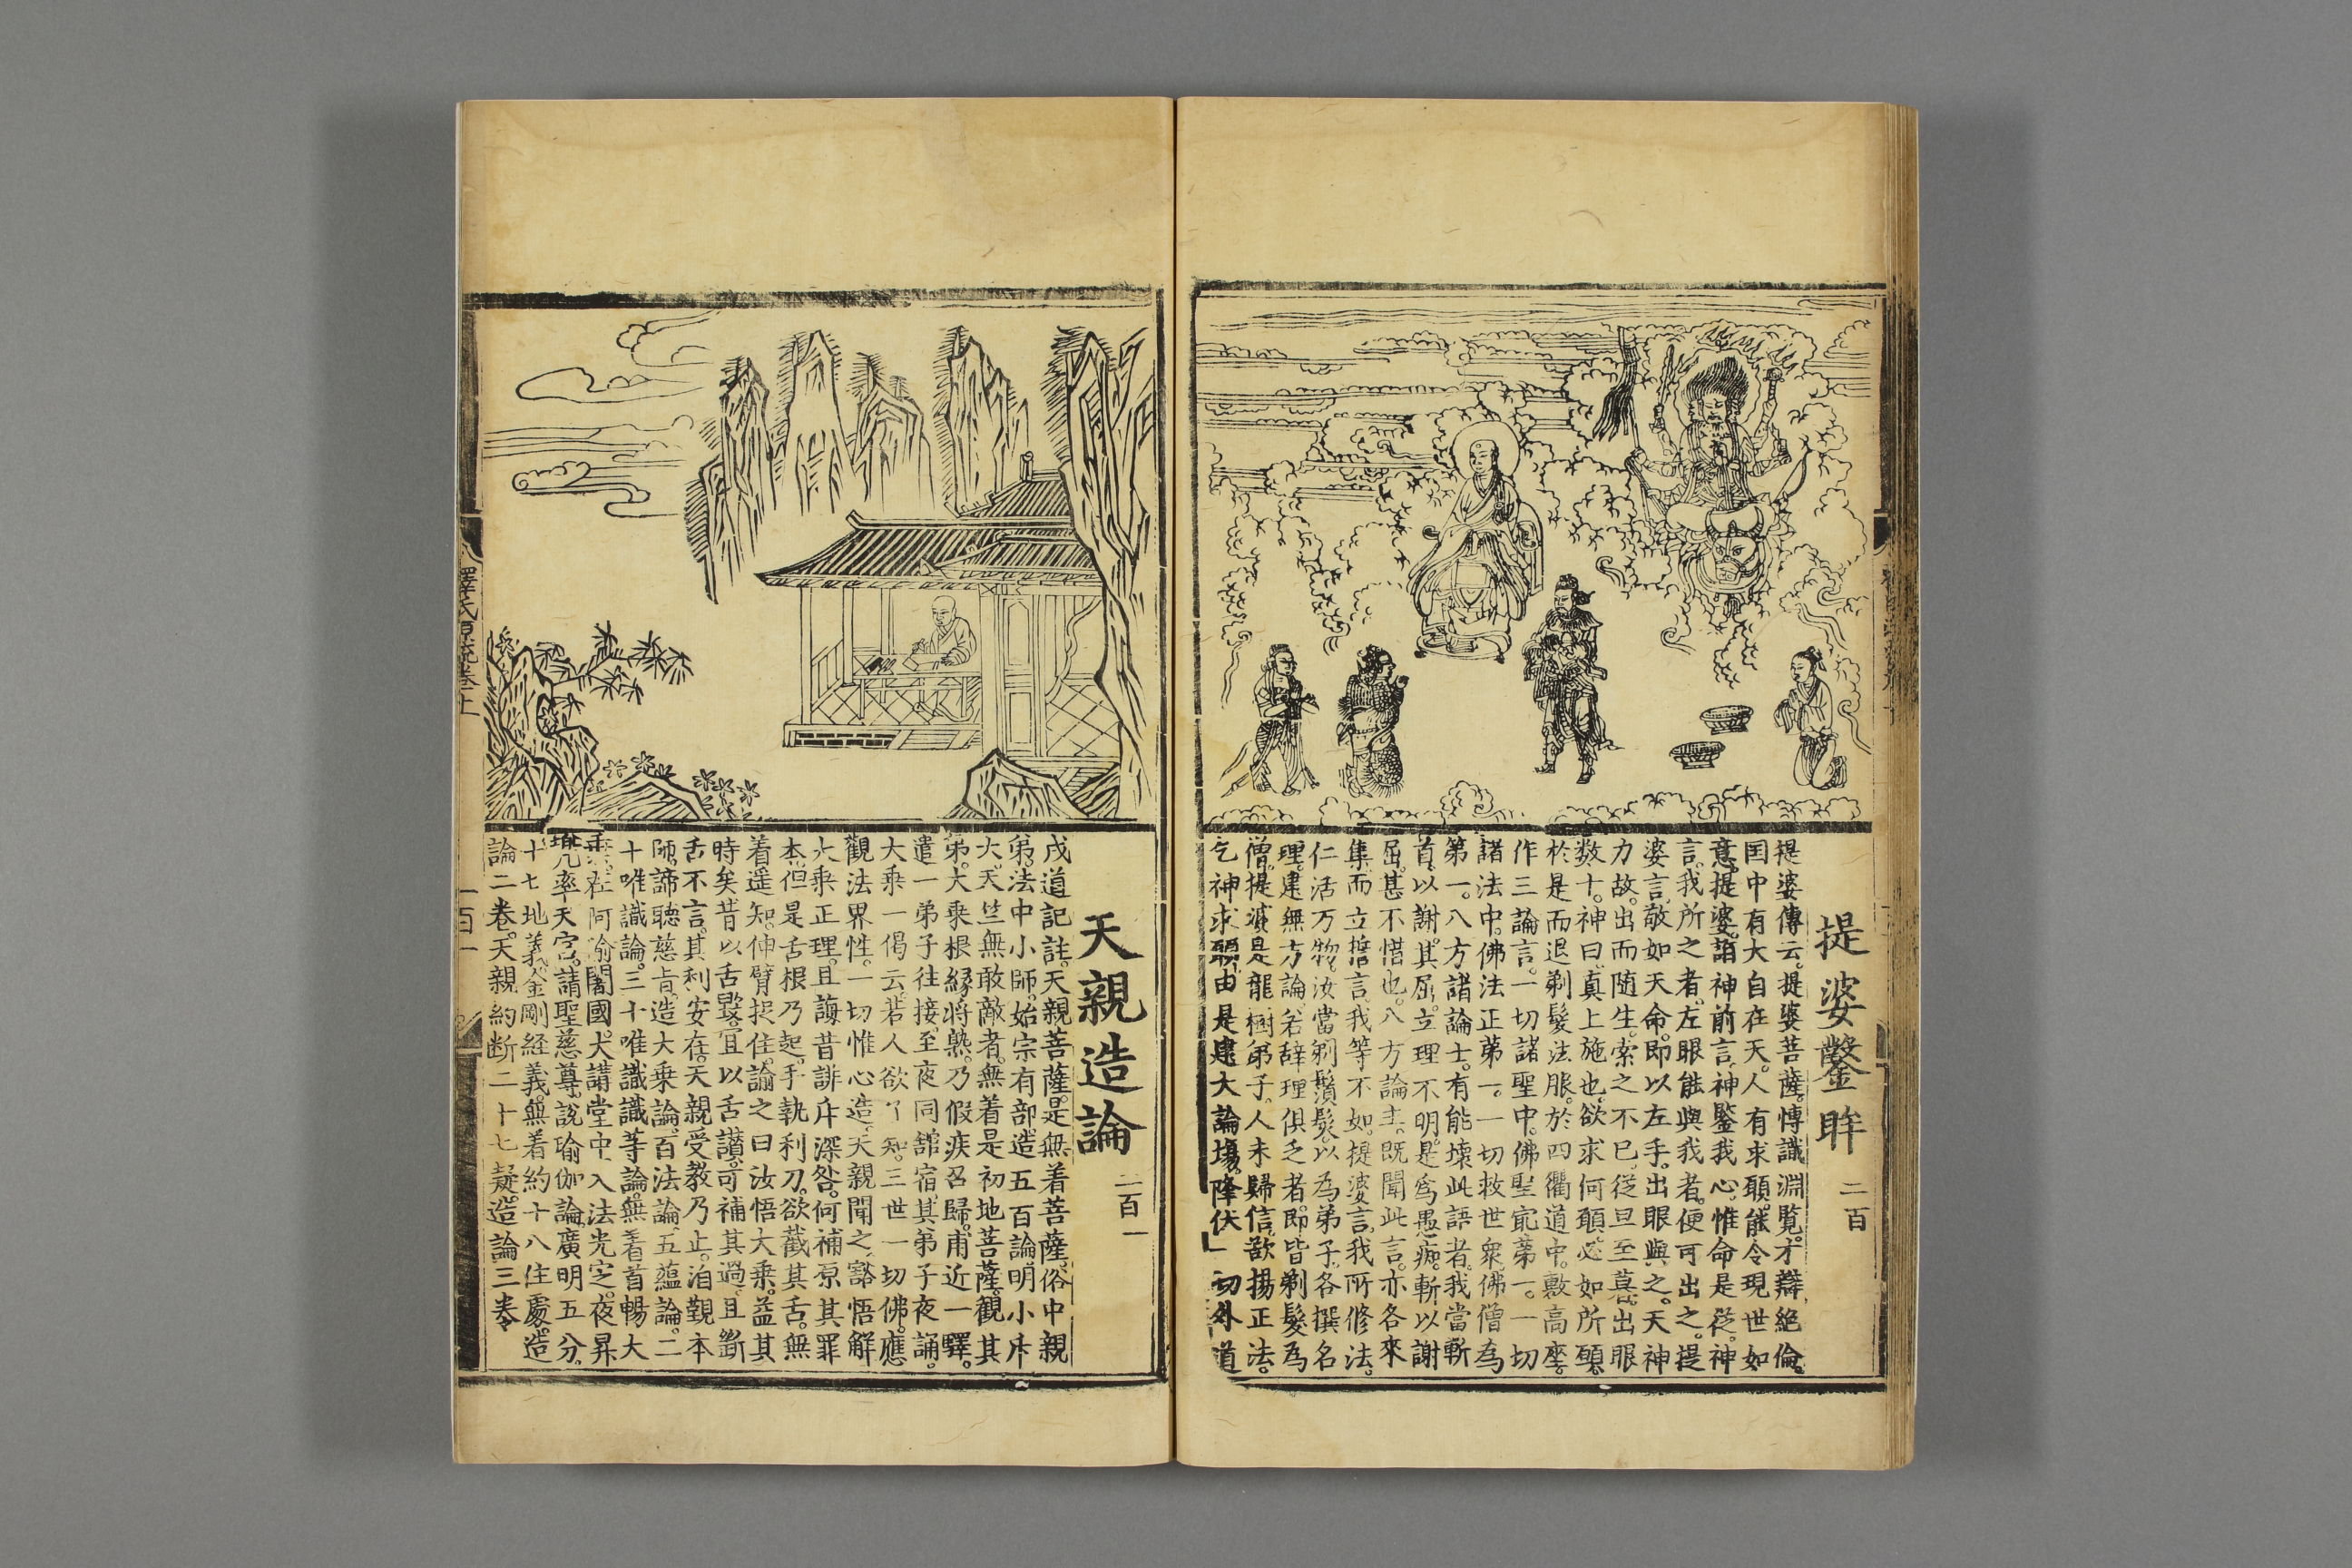 提婆鑿眸 二百
提婆傳云。提婆菩薩。愽識淵覽。才辯絕倫。
囯中有大自在天。人有求願。能令現世如
意。提婆詣神前言。神鑒我心。惟命是從。神
言。我所之者。左眼能與我者。便可出之。提
婆言。敬如天命。即以左手。出眼與之。天神
力故。出而隨生。索之不已。從旦至暮。出眼
数十。神曰。真上施也。欲求何願。必如所願。
於是而退。剃髮法服。於四衢道中。敷高座。
作三論言。一切諸聖中。佛聖㝡苐一。一切
諸法中。佛法正苐一。一切救世衆。佛僧為
第一。八方諸論士。有能壞此語者。我當斬
首。以謝其屈。立理不明。是為愚痴。斬以謝
屈。甚不惜也。八方論主。既聞此言。亦各來
集。而立誓言。我等不如。提婆言。我所修法。
仁活万物。汝當剃鬚髮。以為弟子。各撰名
理。建無方論。若辞理俱乏者。即皆剃髮為
僧。提婆是龍樹弟子。人未歸信。欲揚正法。
乞神求願。由是建大論塲。降伏一切外道
天親造論 二百一
戊道記註。天親菩薩。是無着菩薩。俗中親
弟。法中小師。始宗有部。造五百論。明小斥
大。天竺無敢敵者。無着是初地菩薩。觀其
弟。大乘根緣將熟。乃假疾召歸。甫近一驛。
遣一弟子往接。至夜同舘宿。其弟子夜誦。
大乘一偈云。若人欲了知。三世一切佛。應
觀法界性。一切惟心造。天親聞之。豁悟解
大乘正理。且誨昔誹斥深咎。何補原其罪
本。但是舌根乃起。手執利刀。欲截其舌。無
着遥知。伸臂捉住。諭之曰汝悟大乗。益其
時矣。昔以舌毀。宜以舌讃。可補其過。且斷
舌不言。其利安在。天親受教乃止。洎覲本
師。諦聴慈旨。造大乘論。百法論。五蘊論。二
十唯識論。三十唯識識等論。無着首暢大
乘。在阿渝闍國。大講堂中。入法光定。夜昇
兜率天宫。請聖慈尊。說瑜伽論。廣明五分。
十七地義。金剛経義。無着約十八住處。造
論二卷。天親約断二十七疑。造論三卷
釋氏源流卷上
一百一